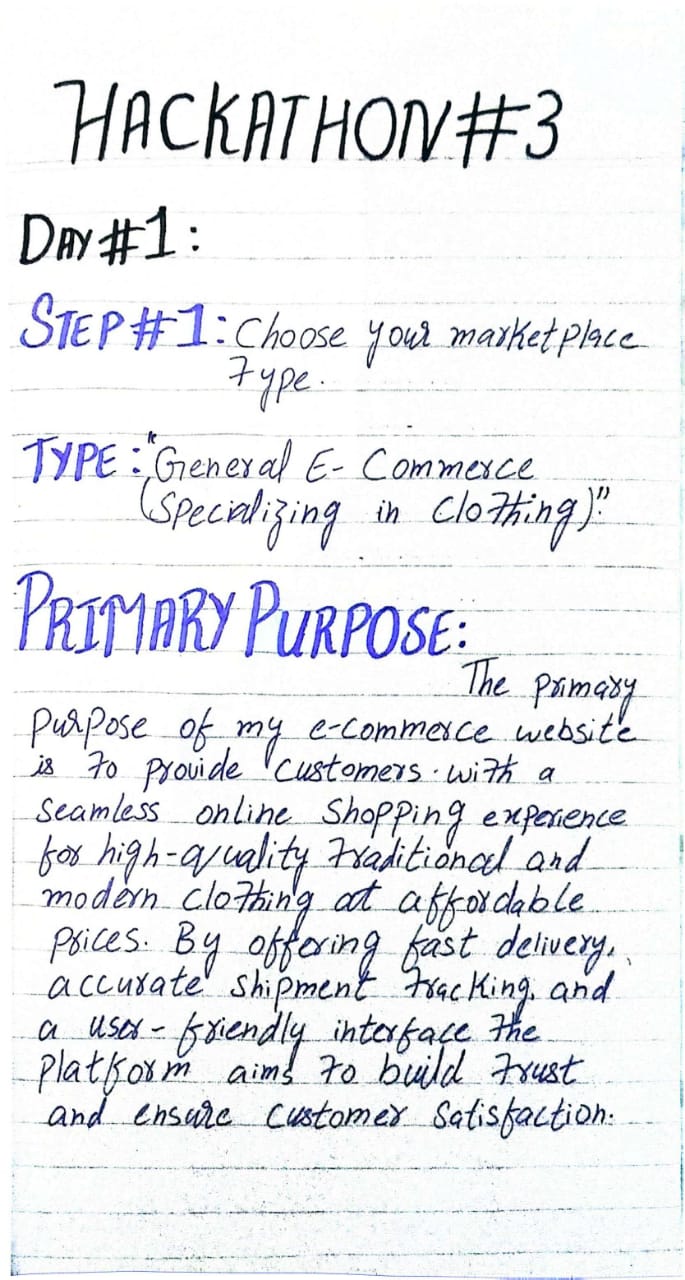 HACKATHON#3
DAY#1:
STEP#1: Choose your marketplace
Type.
TYPE: "General E-Commerce
(Specializing in Clothing)."
PRIMARY PURPOSE:
The primary
purpose of my e-commerce website
is to provide customers with a
seamless online shopping experience
for high-quality traditional and
modern clothing at affordable
prices. By offering fast delivery,
accurate shipment tracking, and
a user-friendly interface the
platform aims to build trust
and ensure customer satisfaction.